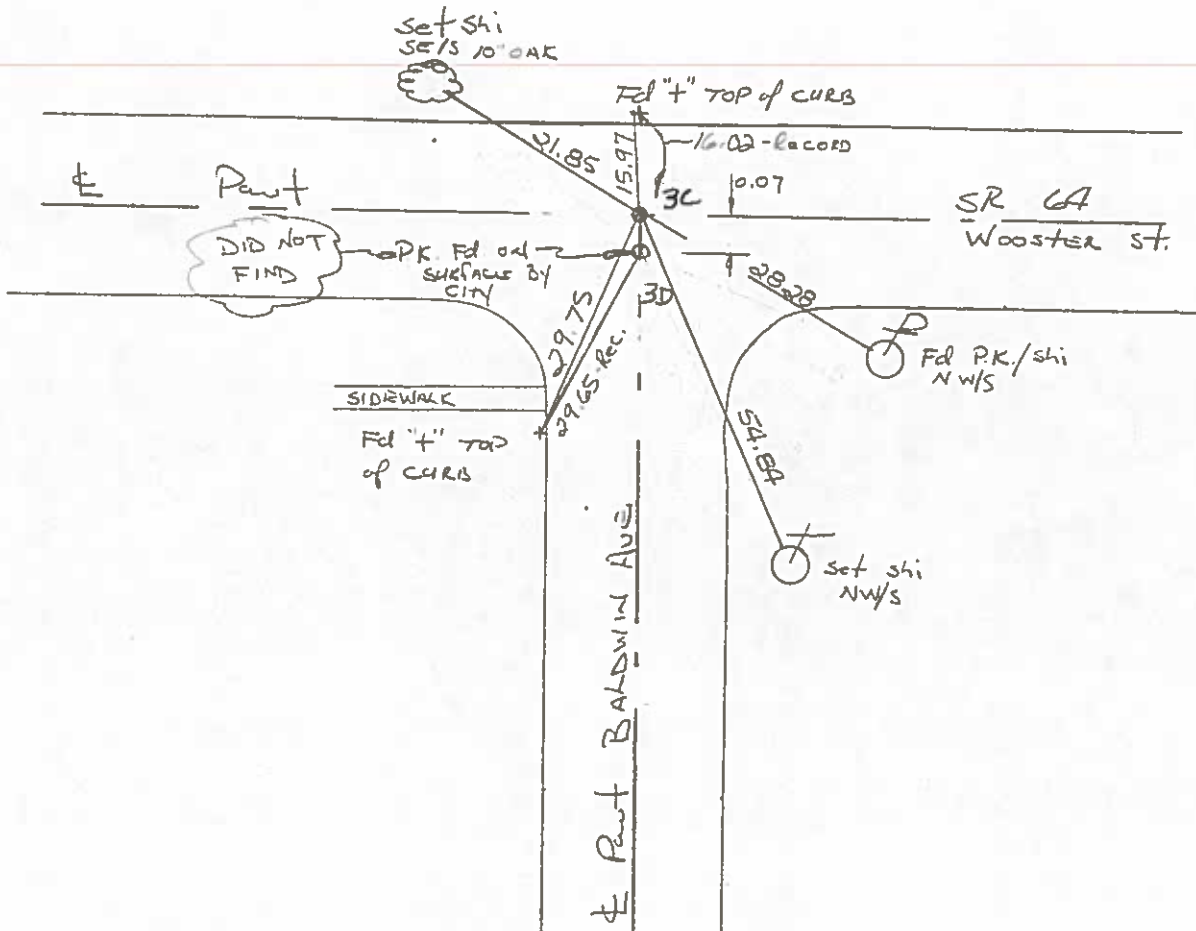 Set Shi
SE/S 10" OAK
Fd "+" TOP of CURB
21.85
15.97
16.02-Record
0.07
℄ Pavt
3C
SR 64
WOOSTER ST.
DID NOT
FIND
P.K. Fd on
SURFACE BY
CITY
3D
28.28
Fd P.K./Shi
NW/S
29.75
29.65-Rec.
SIDEWALK
Fd "+" TOP
of CURB
54.84
Set Shi
NW/S
℄ Pavt BALDWIN AVE